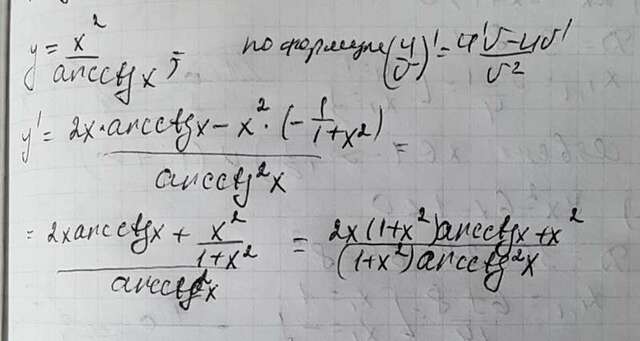 y = x² / arcctg x ; по формуле (u/v)' = (u'v - uv') / v²
y' = (2x · arcctg x - x² · (- 1/(1+x²))) / arcctg² x =
= (2x arcctg x + x²/(1+x²)) / arcctg² x = (2x(1+x²) arcctg x + x²) / ((1+x²) arcctg² x)